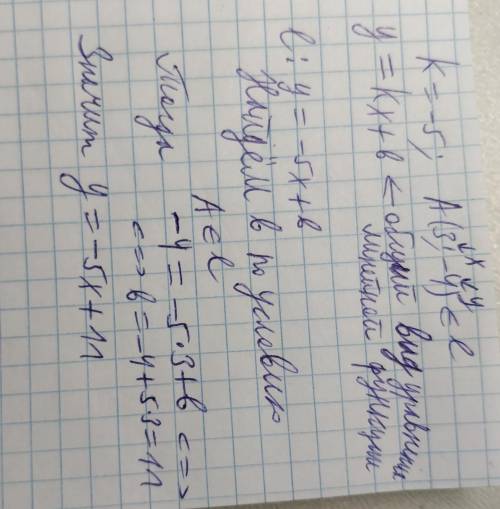 k = -5; A(3; -4) ∈ l
x y
y = kx + b ← общий вид уравнения
линейной функции
l: y = -5x + b
Найдём b по условию
A ∈ l
Тогда -4 = -5·3 + b <=>
<=> b = -4 + 5·3 = 11
Значит y = -5x + 11